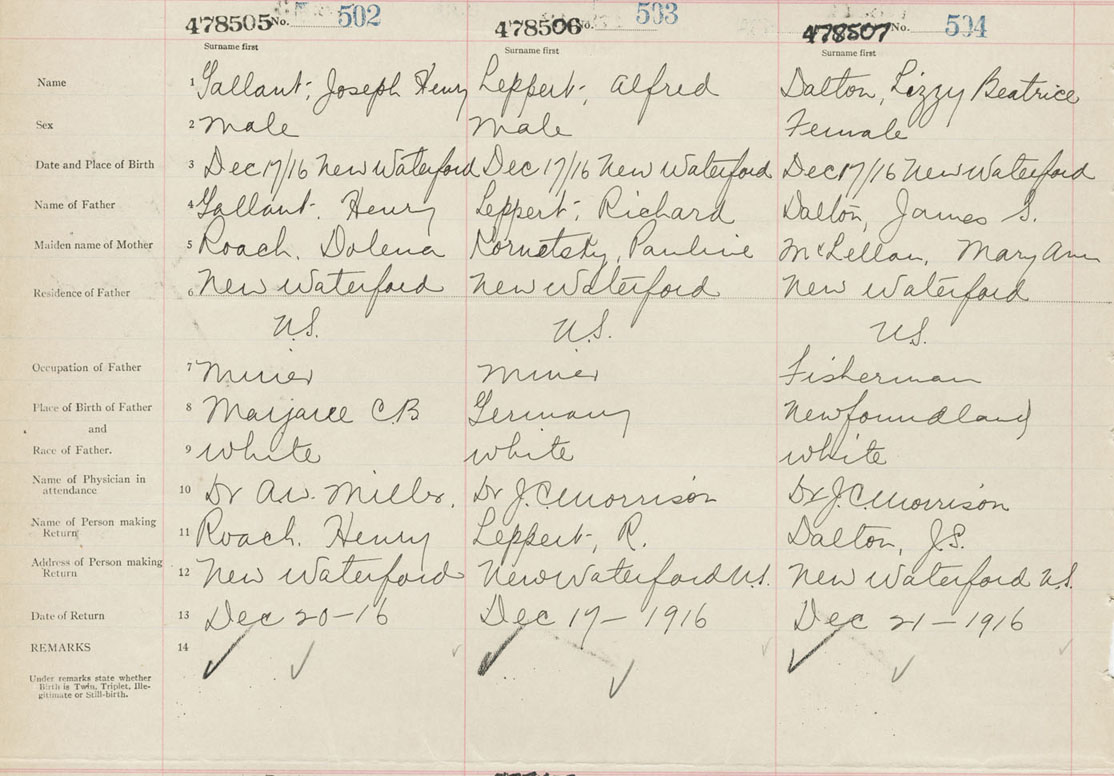 478505 No. 502 478506 No. 503 478507 No. 504
Surname first Surname first Surname first
Name 1 Gallant, Joseph Henry Leppert, Alfred Dalton, Lizzy Beatrice
Sex 2 Male Male Female
Date and Place of Birth 3 Dec 17/16 New Waterford Dec 17/16 New Waterford Dec 17/16 New Waterford
Name of Father 4 Gallant, Henry Leppert, Richard Dalton, James S.
Maiden name of Mother 5 Roach, Dolena Kornetsky, Pauline McLellan, Mary Ann
Residence of Father 6 New Waterford New Waterford New Waterford
N.S. N.S. N.S.
Occupation of Father 7 Miner Miner Fisherman
Place of Birth of Father 8 Marjaree C.B Germany Newfoundland
and
Race of Father. 9 White White White
Name of Physician in
attendance 10 Dr A.W. Miller. Dr J.C. Morrison Dr J.C. Morrison
Name of Person making
Return 11 Roach, Henry Leppert, R. Dalton, J.S.
Address of Person making
Return 12 New Waterford New Waterford N.S. New Waterford N.S.
Date of Return 13 Dec 20-16 Dec 19-1916 Dec 21-1916
REMARKS 14
Under remarks state whether
Birth is Twin, Triplet, Ille-
gitimate or Still-birth.